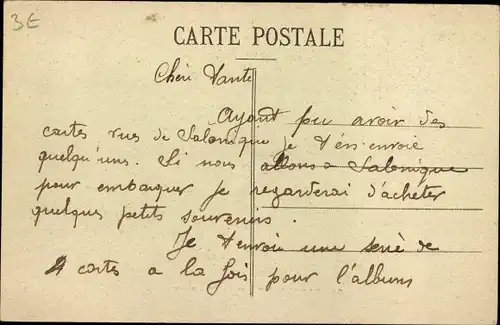 3E
CARTE POSTALE
Chéri Tante
Ayant pu avoir des
cartes vues de Salonique je t'en envoie
quelqu'uns. Si nous allons a Salonique
pour embarquer je regarderai d'acheter
quelques petits souvenirs.
Je t'envoie une serie de
4 cartes a la fois pour l'album